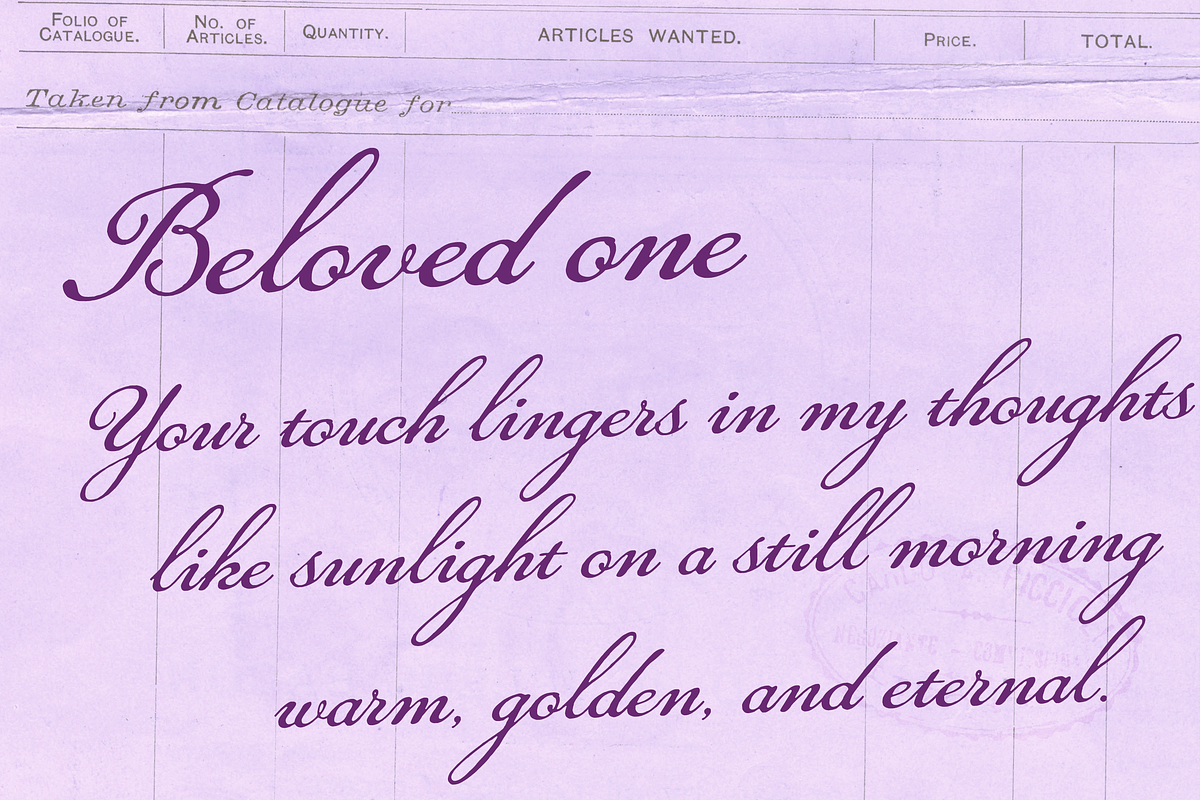 FOLIO OF CATALOGUE. No. OF ARTICLES. QUANTITY. ARTICLES WANTED. PRICE. TOTAL.
Taken from Catalogue for
Beloved one
Your touch lingers in my thoughts
like sunlight on a still morning
warm, golden, and eternal.